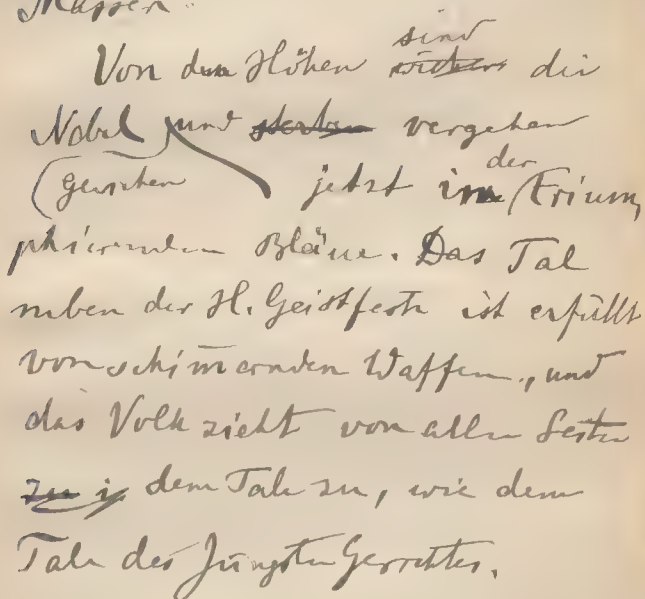 Massen.
Von den Höhen sind die
Nebel und sterben vergehen
(gewichen jetzt in der trium
phierenden Bläue. Das Tal
neben der H. Geistfeste ist erfüllt
von schim̄ernden Waffen, und
das Volk zieht von allen Seiten
zu dem Tale zu, wie dem
Tale des Jüngsten Gerichtes.